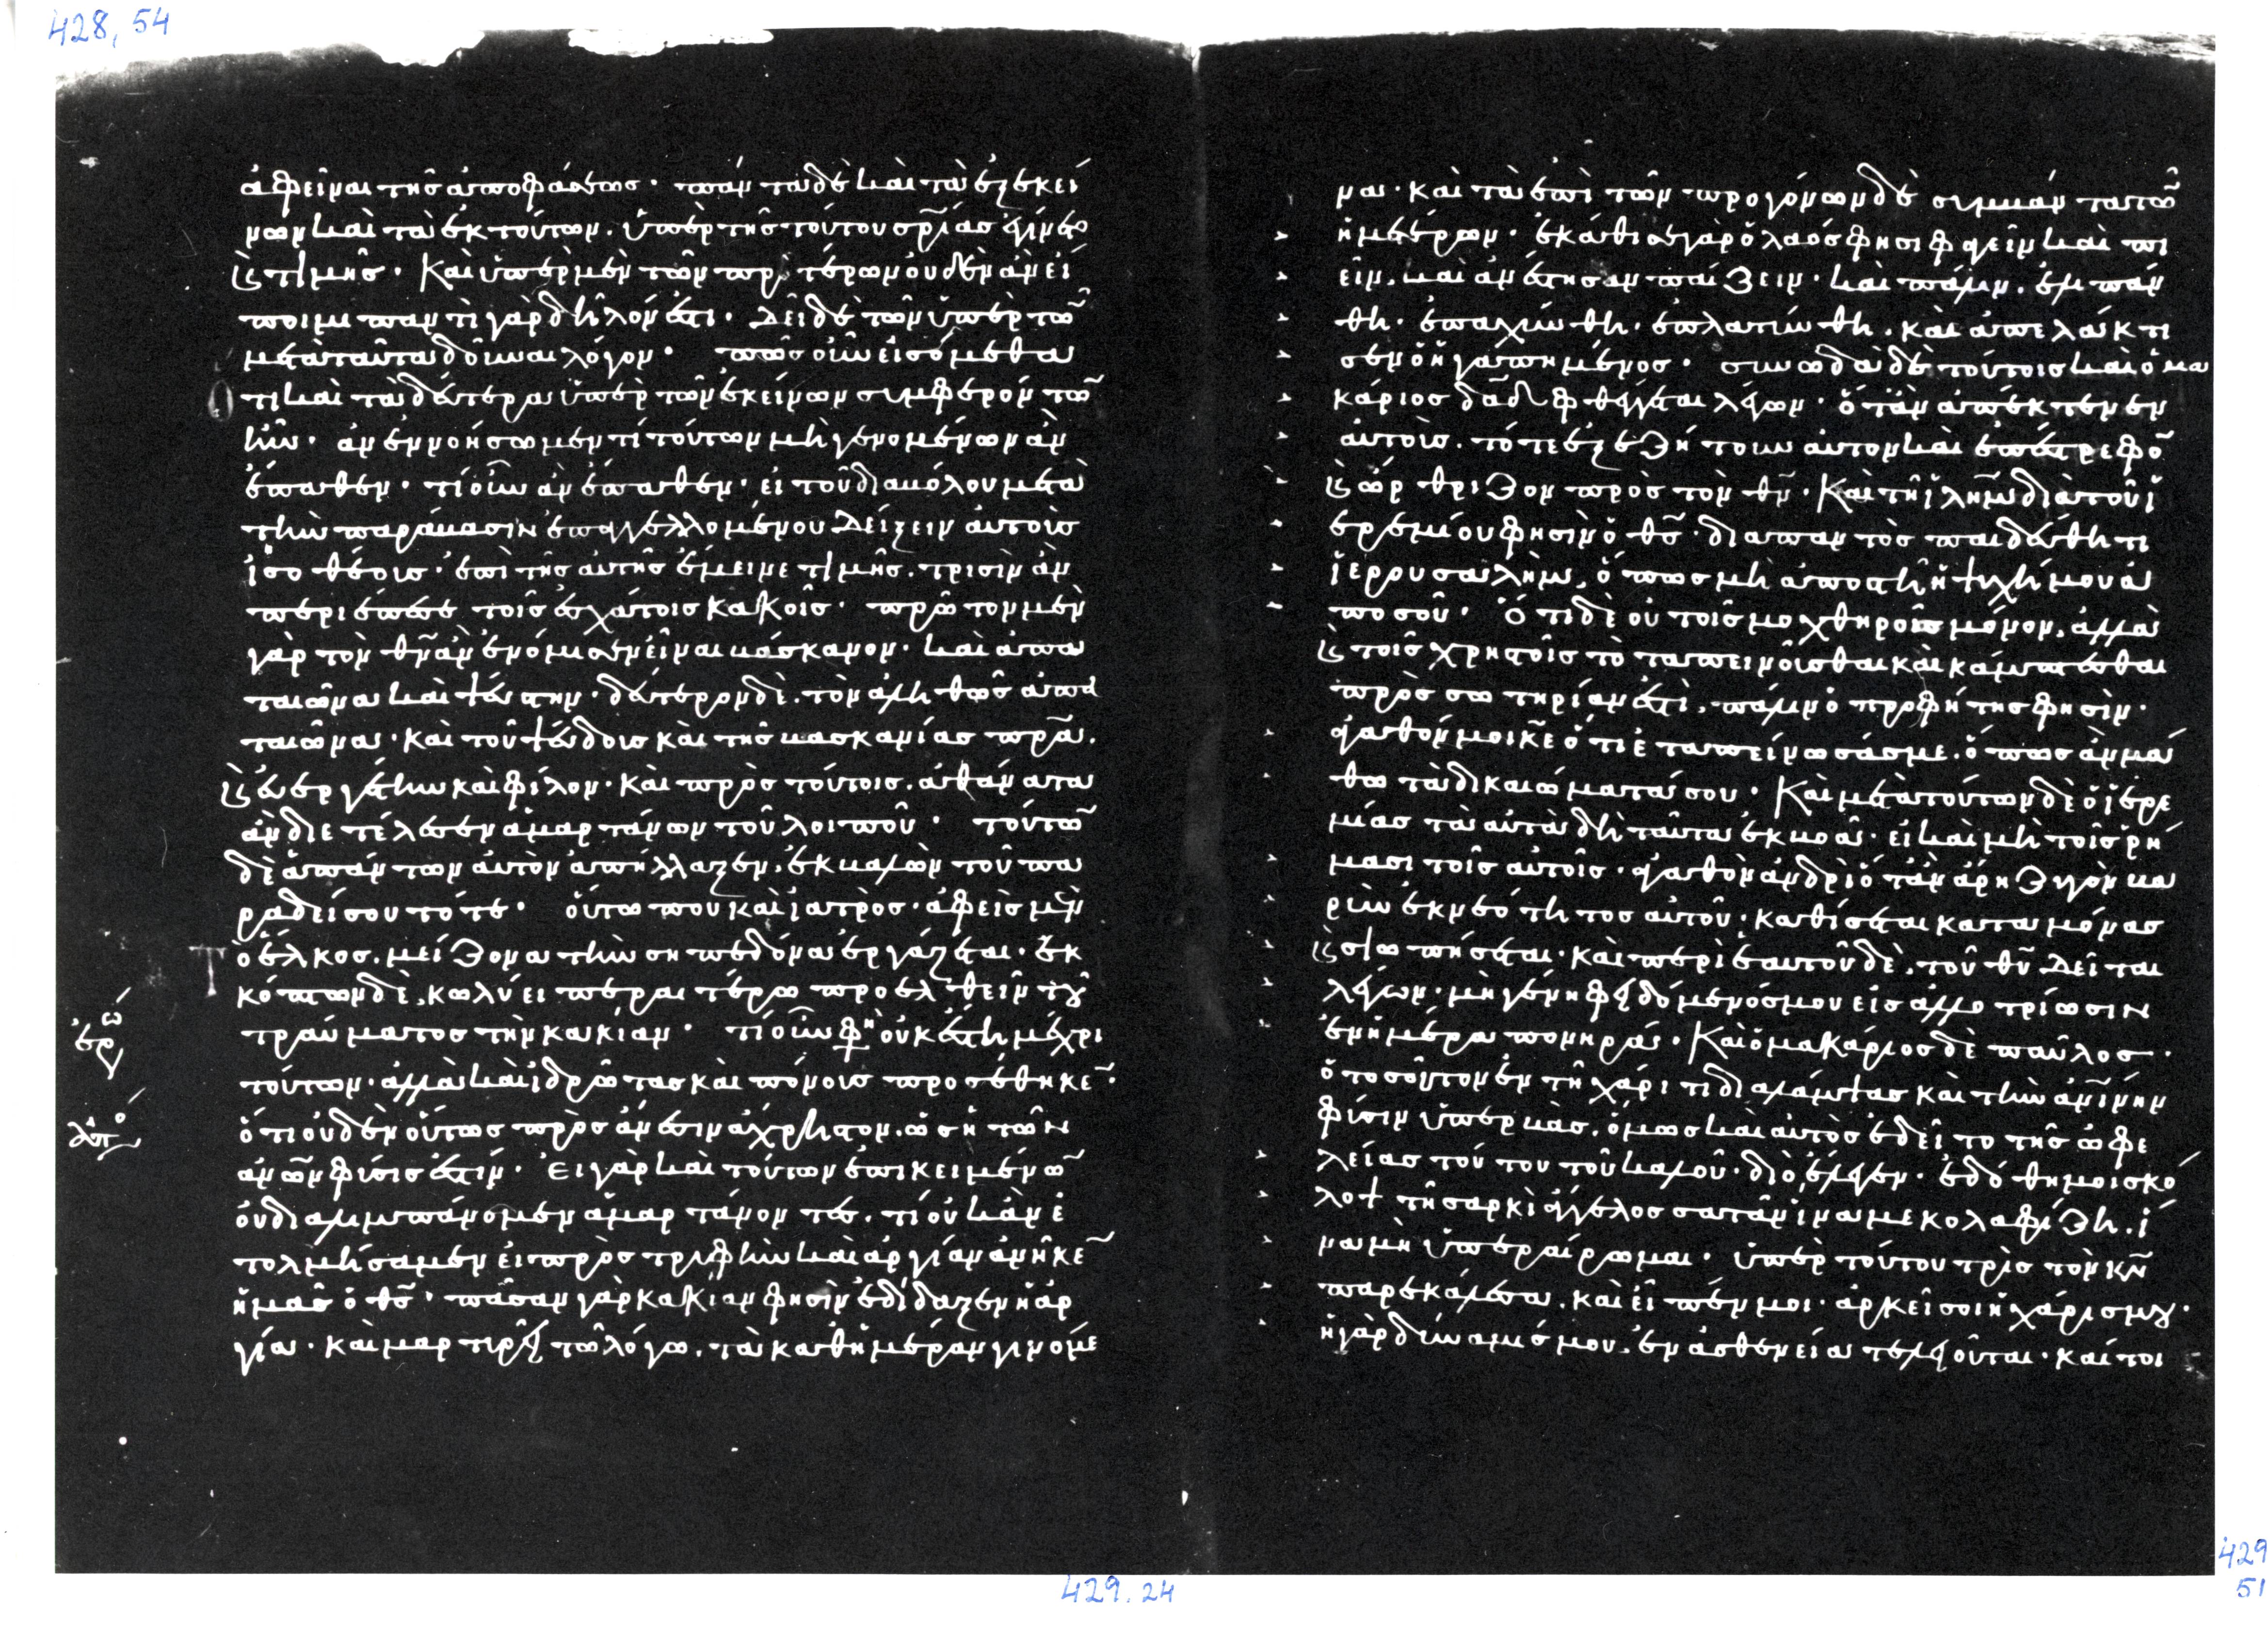 428, 54
ἀφεῖναι τῆς ἀποφάσεως · πάντα δὲ καὶ τὰ ἐξ ἐκεί
νων καὶ τὰ ἐκ τούτων, ὑπὲρ τῆς τούτου σρίας ἐγίνετο
καὶ τιμῆς · Καὶ ὑπὲρ μὲν τῶν προτέρων οὐδὲν ἂν εἴ
ποιμι παντὶ γὰρ δῆλόν ἐστι · δεῖ δὲ τῶν ὑπὲρ τῶ
μετὰ ταῦτα δοῦναι λόγον · πῶς οὖν εἰσόμεθα
ὅτι καὶ τὰ δεύτερα ὑπὲρ τῶν ἐκείνων συμφερόντω
ἦν · ἂν ἐννοήσωμεν τί τούτων μὴ γενομένων ἂν
ἔπαθεν · τί οὖν ἂν ἔπαθεν · εἰ τοῦ διαβόλου μετὰ
τὴν παράβασιν ἐπαγγελλομένου δείξειν αὐτοὺς
ἰσοθέους · ἐπὶ τῆς αὐτῆς ἔμεινε τιμῆς, τρισὶν ἂν
περιέπεσε τοῖς ἐσχάτοις κακοῖς · πρῶτον μὲν
γὰρ τὸν θν ἂν ἐνόμισεν εἶναι βάσκανον · καὶ ἀπα
ταιῶνα καὶ ψεύστην · δεύτερον δὲ, τὸν ἀληθῶς ἀπα
ταιῶνα · καὶ τοῦ ψεύδους καὶ τῆς βασκανίας πρα,
καὶ εὐεργέτην καὶ φίλον · καὶ πρὸς τούτοις, ἀθάνατα
ἂν διετέλεσεν ἁμαρτάνων τοῦ λοιποῦ · τούτω
δὲ ἁπάντων αὐτὸν ἀπήλλαξεν, ἐκβαλὼν τοῦ πα
ραδείσου τότε · οὕτω που καὶ ἰατρὸς · ἀφεὶς μὲν
τὸ ἕλκος, μείζονα τὴν σηπεδόνα ἐργάζεται · ἐκ
κόπτων δὲ, κωλύει περαιτέρω προσελθεῖν τοῦ
τραύματος τὴν κακίαν · τί οὖν φη οὐκ ἔστη μέχρι
τούτων · ἀλλὰ καὶ ἱδρῶτας καὶ πόνους προσέθηκε ·
ὅτι οὐδὲν οὕτως πρὸς ἄνεσιν ἄχρηστον, ὡς ἡ τῶν
ανων φύσις ἐστίν · Εἰ γὰρ καὶ τούτων ἐπικειμένω
οὐ διαλιμπάνομεν ἁμαρτάνοντες, τί οὐκ ἂν ἐ
τολμήσαμεν εἰ πρὸς τρυφὴν καὶ ἀργίαν ἀνῆκε
ἡμᾶς ὁ θς · πᾶσαν γὰρ κακίαν φησὶν ἐδίδαξεν ἡ ἀρ
γία · καὶ μαρτυρεῖ τῶ λόγω, τὰ καθ ἡμέραν γινόμε
429.24
να · καὶ τὰ ἐπὶ τῶν προγόνων δὲ συμβάντα τῶ
ἡμετέρων · ἐκάθισε γὰρ ὁ λαός φησι φαγεῖν καὶ πι
εῖν, καὶ ἀνέστησαν παίζειν · καὶ πάλιν, ἐλιπάν
θη, ἐπαχύνθη, ἐπλατύνθη, καὶ ἀπελάκτι
σεν ὁ ἠγαπημένος · συνωδὰ δὲ τούτοις καὶ ὁ μα
κάριος δαδ φθέγγεται λέγων · ὅταν ἀπέκτενεν
αὐτοὺς, τότε ἐξεζήτουν αὐτὸν καὶ ἐπέστρεφο
καὶ ὤρθριζον πρὸς τὸν θν · Καὶ τῆ ἰλημ διὰ τοῦ ἱ
ερεμίου φησὶν ὁ θς · διὰ παντὸς παιδεύθητι
ἱερουσαλὴμ, ὅπως μὴ ἀποστῆ ἡ ψυχή μου ἀ
πὸ σοῦ · Ὅτι δὲ οὐ τοῖς μοχθηροῖς μόνον, ἀλλὰ
καὶ τοῖς χρηστοῖς τὸ ταπεινοῦσθαι καὶ κάμπτεσθαι
πρὸς σωτηρίαν ἐστὶ, πάλιν ὁ προφήτης φησὶν ·
ἀγαθόν μοι κε ὅτι ἐταπείνωσάς με, ὅπως ἂν μά
θω τὰ δικαιώματά σου · Καὶ μετὰ τούτων δὲ ὁ ἱερε
μίας τὰ αὐτὰ δὴ ταῦτα ἐκβοᾶ · εἰ καὶ μὴ τοῖς ῥή
μασι τοῖς αὐτοῖς · ἀγαθὸν ἀνδρὶ ὅταν ἄρη ζυγὸν βα
ρὺν ἐκ νεότητος αὐτοῦ · καθίσεται καταμόνας
καὶ σιωπήσεται · καὶ περὶ ἑαυτοῦ δὲ, τοῦ θυ δεῖται
λέγων · μὴ γένη φειδόμενός μου εἰς ἀλλοτρίωσιν
ἐν ἡμέρα πονηρᾶ · Καὶ ὁ μακάριος δὲ παῦλος ·
ὁ τοσοῦτον ἐν τῆ χάριτι διαλάμψας καὶ τὴν ανινην
φύσιν ὑπερβὰς, ὅμως καὶ αὐτὸς ἐδεῖτο τῆς ὠφε
λείας τούτου τοῦ καλοῦ · διὸ ἔλεγεν · ἐδόθη μοι σκό
λοψ τῆ σαρκὶ ἄγγελος σατᾶν ἵνα με κολαφίζη, ἵ
να μὴ ὑπεραίρωμαι · ὑπὲρ τούτου τρὶς τὸν κν
παρεκάλεσα, καὶ εἶπέν μοι · ἀρκεῖ σοι ἡ χάρις μου ·
ἡ γὰρ δύναμίς μου, ἐν ἀσθενεία τελειοῦται · καίτοι
429
51